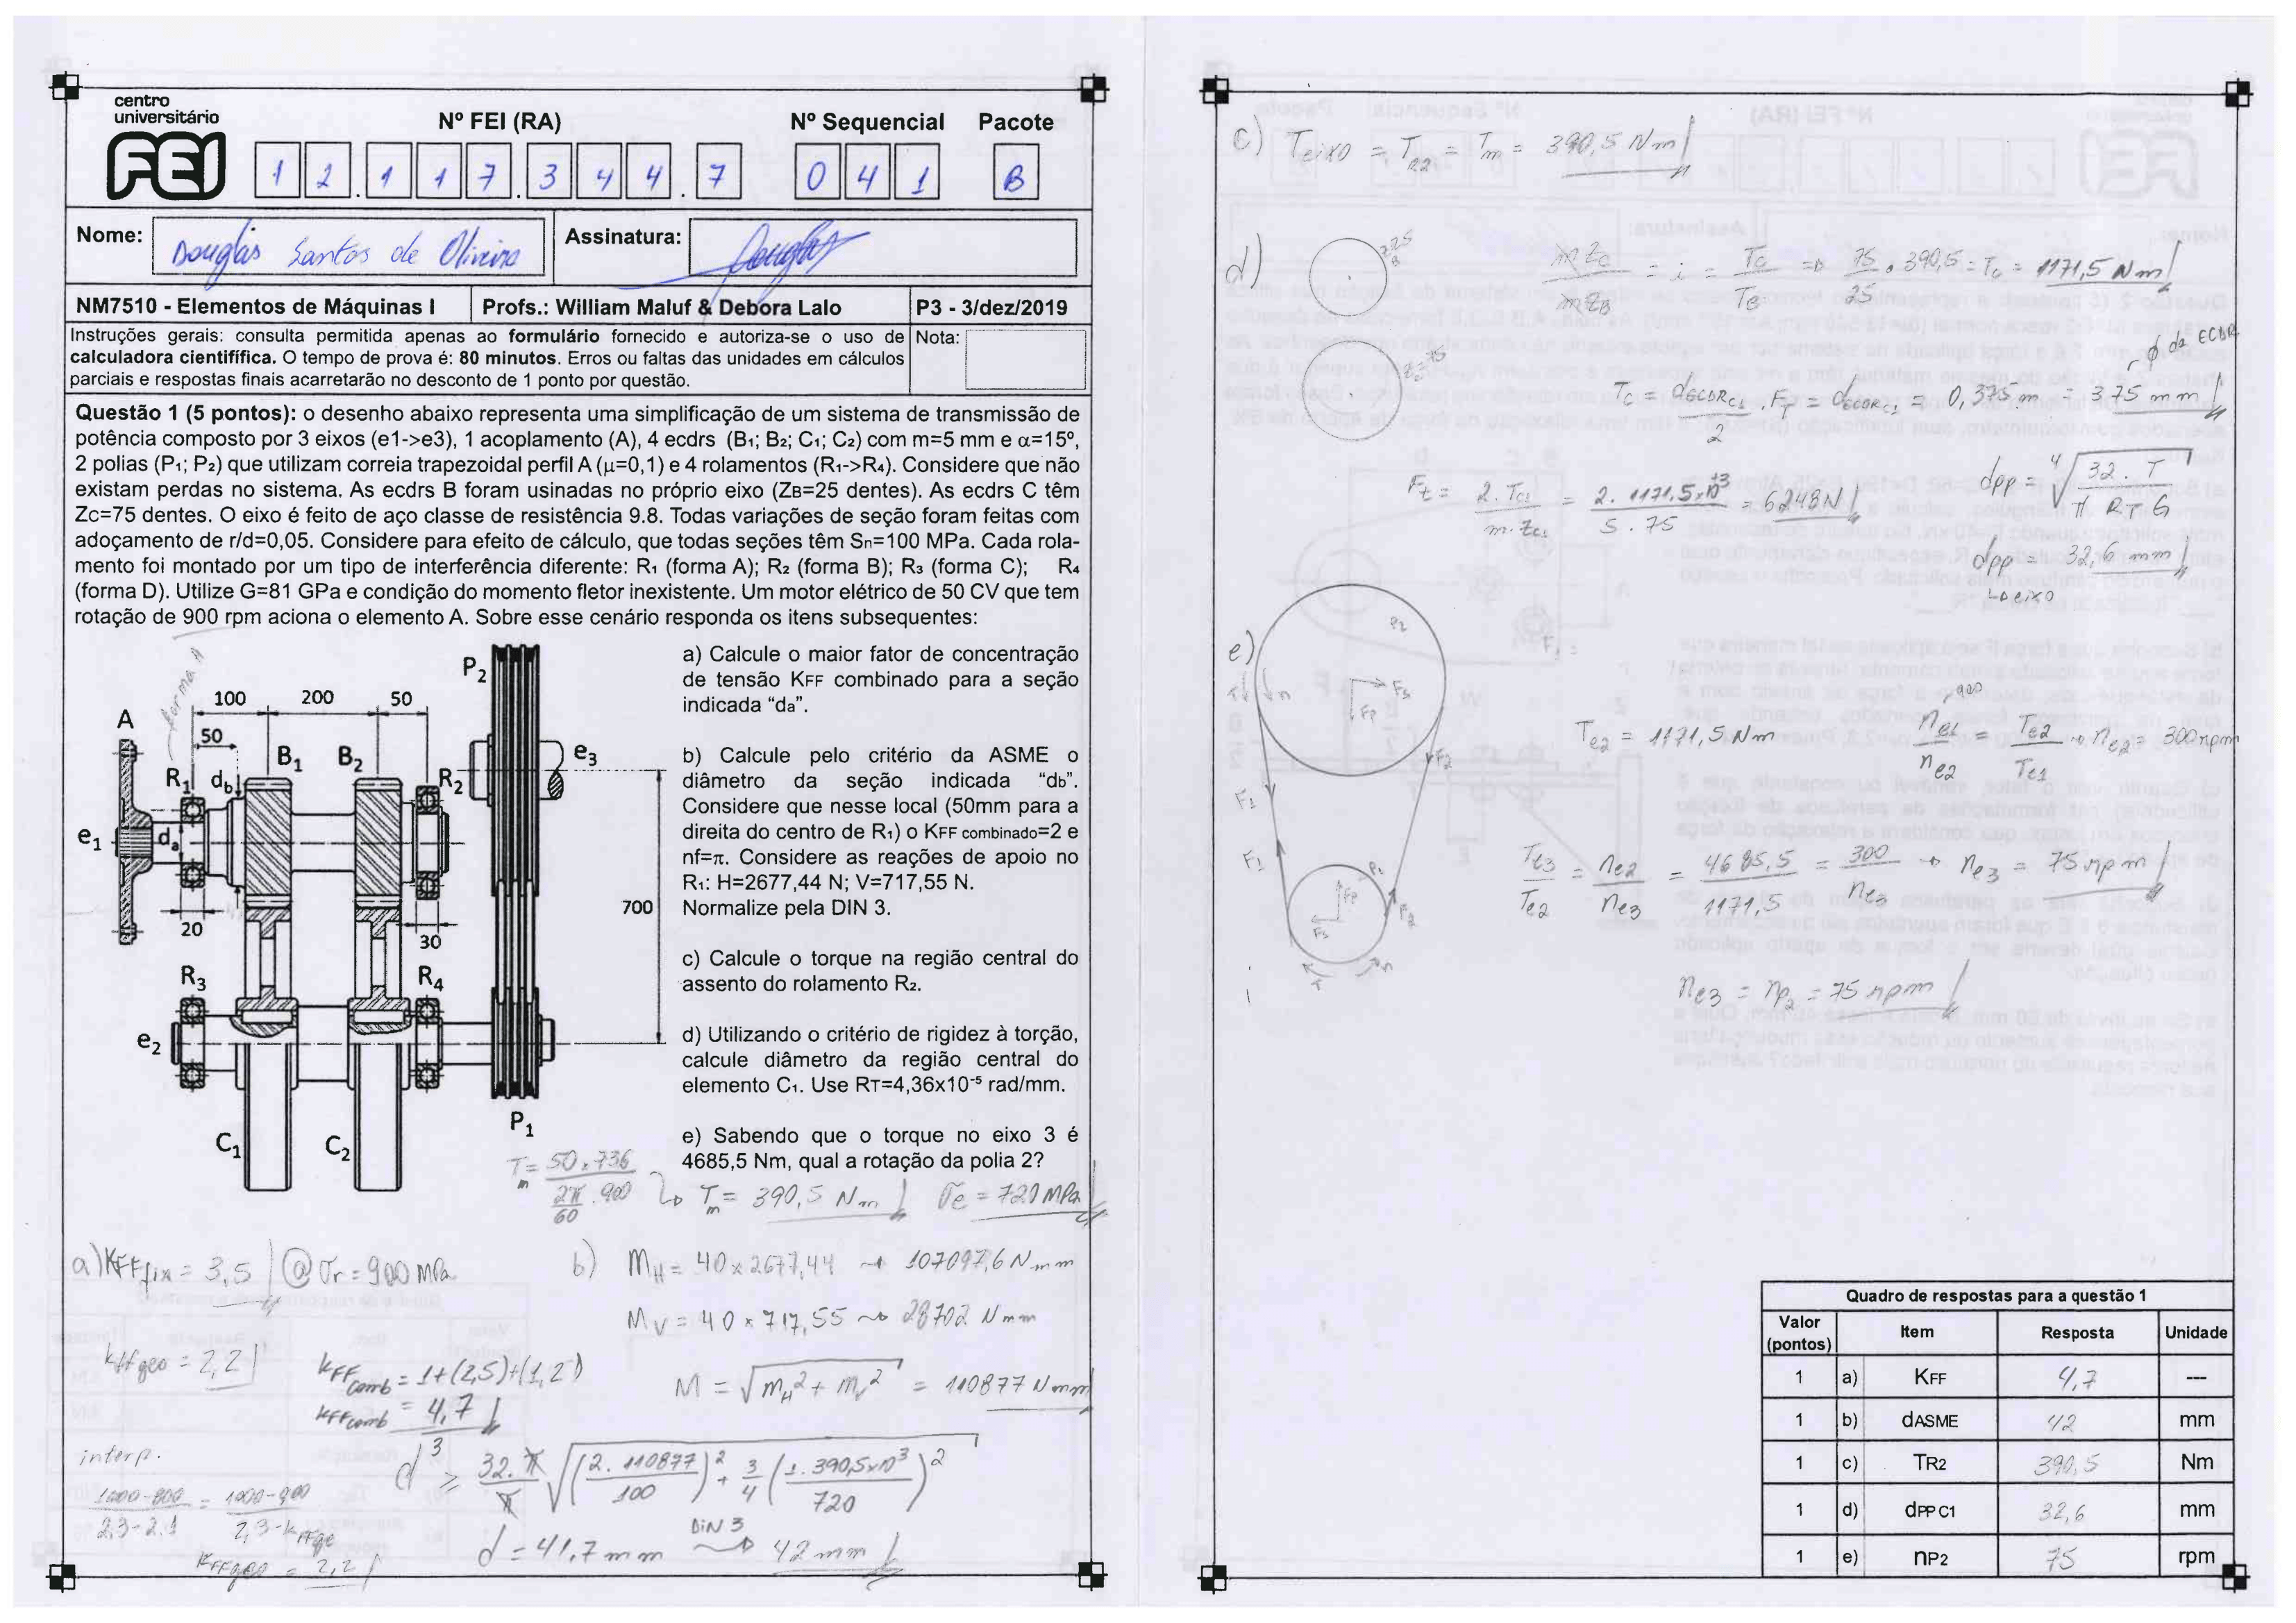 centro
universitário
FEI
Nº FEI (RA)
Nº Sequencial
Pacote
1 2 . 1 1 7 . 3 4 4 . 7
0 4 1
B
Nome: Douglas Santos de Oliveira
Assinatura: Douglas
NM7510 - Elementos de Máquinas I
Profs.: William Maluf & Debora Lalo
P3 - 3/dez/2019
Instruções gerais: consulta permitida apenas ao formulário fornecido e autoriza-se o uso de
calculadora cientifífica. O tempo de prova é: 80 minutos. Erros ou faltas das unidades em cálculos
parciais e respostas finais acarretarão no desconto de 1 ponto por questão.
Nota:
Questão 1 (5 pontos): o desenho abaixo representa uma simplificação de um sistema de transmissão de
potência composto por 3 eixos (e1->e3), 1 acoplamento (A), 4 ecdrs (B₁; B₂; C₁; C₂) com m=5 mm e α=15º,
2 polias (P₁; P₂) que utilizam correia trapezoidal perfil A (μ=0,1) e 4 rolamentos (R₁->R₄). Considere que não
existam perdas no sistema. As ecdrs B foram usinadas no próprio eixo (ZB=25 dentes). As ecdrs C têm
Zc=75 dentes. O eixo é feito de aço classe de resistência 9.8. Todas variações de seção foram feitas com
adoçamento de r/d=0,05. Considere para efeito de cálculo, que todas seções têm Sn=100 MPa. Cada rola-
mento foi montado por um tipo de interferência diferente: R₁ (forma A); R₂ (forma B); R₃ (forma C); R₄
(forma D). Utilize G=81 GPa e condição do momento fletor inexistente. Um motor elétrico de 50 CV que tem
rotação de 900 rpm aciona o elemento A. Sobre esse cenário responda os itens subsequentes:
forma A
100 200 50
50
A
R₁
d_b
B₁
B₂
R₂
P₂
e₃
e₁
d_a
20
30
700
R₃
R₄
e₂
C₁
C₂
P₁
a) Calcule o maior fator de concentração
de tensão KFF combinado para a seção
indicada “da”.
b) Calcule pelo critério da ASME o
diâmetro da seção indicada “db”.
Considere que nesse local (50mm para a
direita do centro de R₁) o KFF combinado=2 e
nf=π. Considere as reações de apoio no
R₁: H=2677,44 N; V=717,55 N.
Normalize pela DIN 3.
c) Calcule o torque na região central do
assento do rolamento R₂.
d) Utilizando o critério de rigidez à torção,
calcule diâmetro da região central do
elemento C₁. Use RT=4,36x10⁻⁵ rad/mm.
e) Sabendo que o torque no eixo 3 é
4685,5 Nm, qual a rotação da polia 2?
Tm = 50 x 736 / (2π/60 . 900) → Tm = 390,5 Nm σe = 720 MPa
a) KFF fix = 3,5 @ σr = 900 MPa
kff geo = 2,2
KFF comb = 1+(2,5)+(1,2)
KFF comb = 4,7
interp.
(1000-800)/(2,3-2,1) = (1000-900)/(2,3-kFFge)
KFFgeo = 2,2
b) MH = 40 x 2677,44 → 107097,6 Nmm
MV = 40 x 717,55 → 28702 Nmm
M = √(MH² + Mv²) = 110877 Nmm
d³ ≥ 32.π/π √((2.110877/100)² + 3/4 (1.390,5x10³/720)²)
d = 41,7 mm DIN 3 → 42 mm
c) Teixo = TR2 = Tm = 390,5 Nm
d)
mzc/mzB = i = Tc/TB => 75/25 . 390,5 = Tc = 1171,5 Nm
ϕ da ECDR
Tc = dECDRc1/2 . FT = dECDRc1 = 0,375 m = 375 mm
Ft = 2.Tc1/m.zc1 = 2.1171,5x10³/5.75 = 6248N
dpp = ⁴√(32.T/π RT G)
dpp = 32,6 mm
eixo
e)
P₂
F₁
F₂
P₁
Te2 = 1171,5 Nm
900
ne1/ne2 = Te2/Te1 → ne2 = 300 rpm
Te3/Te2 = ne2/ne3 = 4685,5/1171,5 = 300/ne3 → ne3 = 75 rpm
ne3 = np2 = 75 rpm
Quadro de respostas para a questão 1
Valor (pontos) Item Resposta Unidade
1 a) KFF 4,7 ---
1 b) dASME 42 mm
1 c) TR2 390,5 Nm
1 d) dPP C1 32,6 mm
1 e) nP2 75 rpm